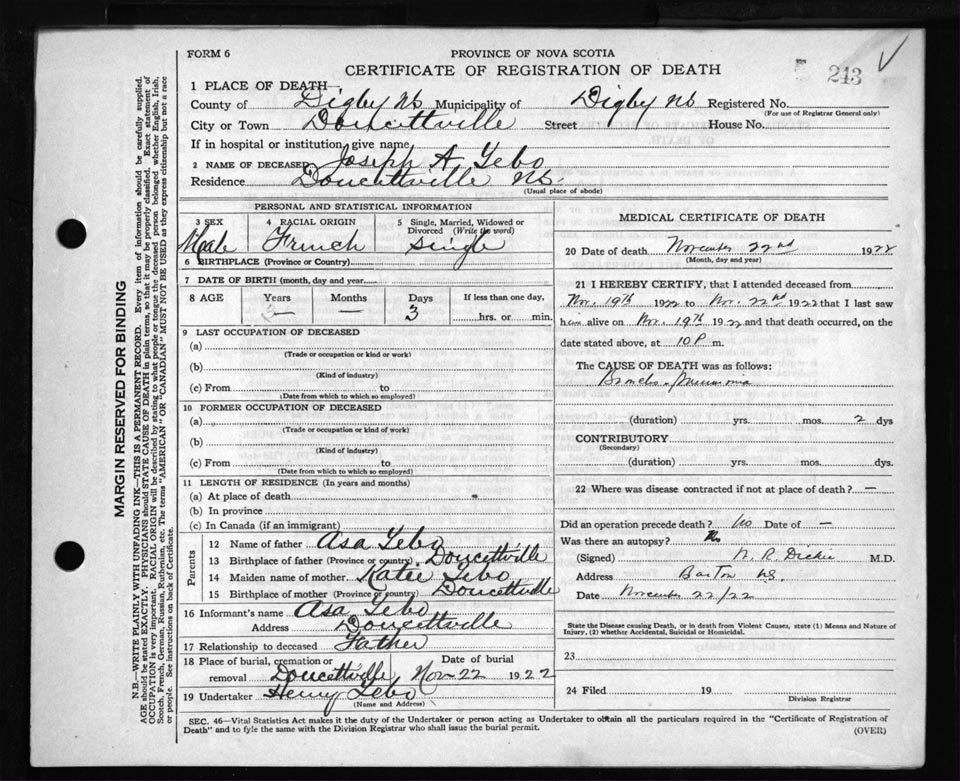 FORM 6
PROVINCE OF NOVA SCOTIA
CERTIFICATE OF REGISTRATION OF DEATH
243
1 PLACE OF DEATH
County of Digby NS Municipality of Digby NS Registered No.
(For use of Registrar General only)
City or Town Doucettville Street House No.
If in hospital or institution, give name
2 NAME OF DECEASED Joseph A Lebo
Residence Doucettville NS
(Usual place of abode)
PERSONAL AND STATISTICAL INFORMATION
3 SEX Male
4 RACIAL ORIGIN French
5 Single, Married, Widowed or Divorced (Write the word) single
6 BIRTHPLACE (Province or Country)
7 DATE OF BIRTH (month, day and year)
8 AGE Years — Months — Days 3 If less than one day, hrs. or min.
9 LAST OCCUPATION OF DECEASED
(a)
(Trade or occupation or kind or work)
(b)
(Kind of industry)
(c) From to
(Date from which to which so employed)
10 FORMER OCCUPATION OF DECEASED
(a)
(Trade or occupation or kind of work)
(b)
(Kind of industry)
(c) From to
(Date from which to which so employed)
11 LENGTH OF RESIDENCE (In years and months)
(a) At place of death
(b) In province
(c) In Canada (if an immigrant)
Parents
12 Name of father Asa Lebo
13 Birthplace of father (Province or country) Doucettville
14 Maiden name of mother Katie Lebo
15 Birthplace of mother (Province or country) Doucettville
16 Informant's name Asa Lebo
Address Doucettville
17 Relationship to deceased Father
18 Place of burial, cremation or removal Doucettville Date of burial Nov 22 1922
19 Undertaker Henry Lebo
(Name and Address)
MEDICAL CERTIFICATE OF DEATH
20 Date of death November 22nd 1922
(Month, day and year)
21 I HEREBY CERTIFY, that I attended deceased from
Nov. 19th 1922 to Nov. 22nd 1922 that I last saw
him alive on Nov. 19th 1922 and that death occurred, on the
date stated above, at 10 P m.
The CAUSE OF DEATH was as follows:
Broncho-Pneumonia
(duration) yrs. mos. 2 dys
CONTRIBUTORY
(Secondary)
(duration) yrs. mos. dys.
22 Where was disease contracted if not at place of death? —
Did an operation precede death? No Date of —
Was there an autopsy? No
(Signed) N. R. Dickie M.D.
Address Barton NS.
Date November 22/22
State the Disease causing Death, or in death from Violent Causes, state (1) Means and Nature of Injury, (2) whether Accidental, Suicidal or Homicidal.
23
24 Filed 19
Division Registrar
SEC. 46—Vital Statistics Act makes it the duty of the Undertaker or person acting as Undertaker to obtain all the particulars required in the "Certificate of Registration of
Death" and to fyle the same with the Division Registrar who shall issue the burial permit.
(OVER)
MARGIN RESERVED FOR BINDING
N.B.—WRITE PLAINLY WITH UNFADING INK—THIS IS A PERMANENT RECORD. Every item of information should be carefully supplied.
AGE should be stated EXACTLY. PHYSICIANS should STATE CAUSE OF DEATH in plain terms, so that it may be properly classified. Exact statement of
OCCUPATION is very important. RACIAL ORIGIN will be described by stating to what people or tongue the deceased person belonged whether English, Irish,
Scotch, French, German, Russian, Ruthenian, etc. The terms "AMERICAN" OR "CANADIAN" MUST NOT BE USED as they express citizenship but not a race
or people. See instructions on back of Certificate.